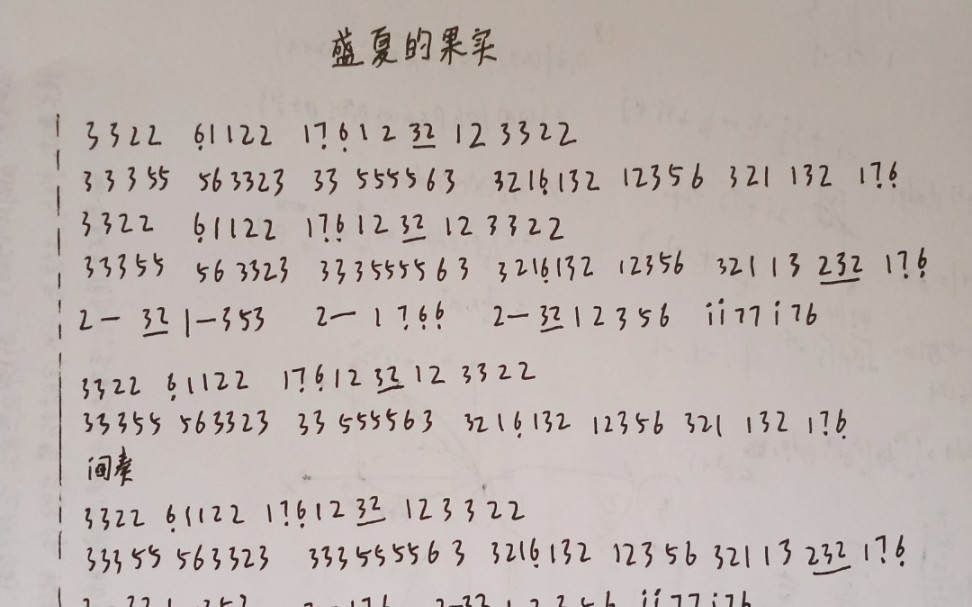 盛夏的果实
3322 6̣1122 17̣6̣12 3̲2̲ 12 3322
33355 563323 33 555563 3216̣132 12356 321 132 17̣6̣
3322 6̣1122 17̣6̣12 3̲2̲ 12 3322
33355 563323 333555563 3216̣132 12356 32113 2̲3̲2̲ 17̣6̣
2— 3̲2̲ 1—353 2— 17̣6̣6̣ 2— 3̲2̲ 12356 i̇i̇77i̇76
3322 6̣1122 17̣6̣12 3̲2̲ 12 3322
33355 563323 33 555563 3216̣132 12356 321 132 17̣6̣
间奏
3322 6̣1122 17̣6̣12 3̲2̲ 123322
33355 563323 333555563 3216̣132 12356 32113 2̲3̲2̲ 17̣6̣